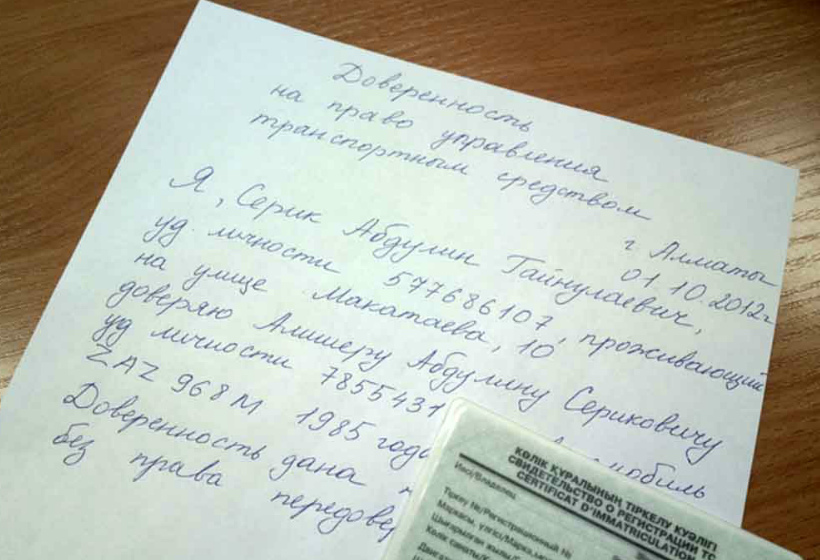 Доверенность
на право управления
транспортным средством
г Алматы
01.10.2012г
Я, Серик Абдулин Гайнулаевич,
уд. личности 577686107, проживающий
на улице Макатаева, 10
доверяю Алишеру Абдулину Сериковичу
уд личности 7855431
ZAZ 968М 1985 года
Доверенность дана
без права передовер
КӨЛІК ҚҰРАЛЫНЫҢ ТІРКЕЛУ КУӘЛІГІ
СВИДЕТЕЛЬСТВО О РЕГИСТРАЦИИ ТС
CERTIFICAT D'IMMATRICULATION
Иесі/Владелец
Тіркеу №/Регистрационный №